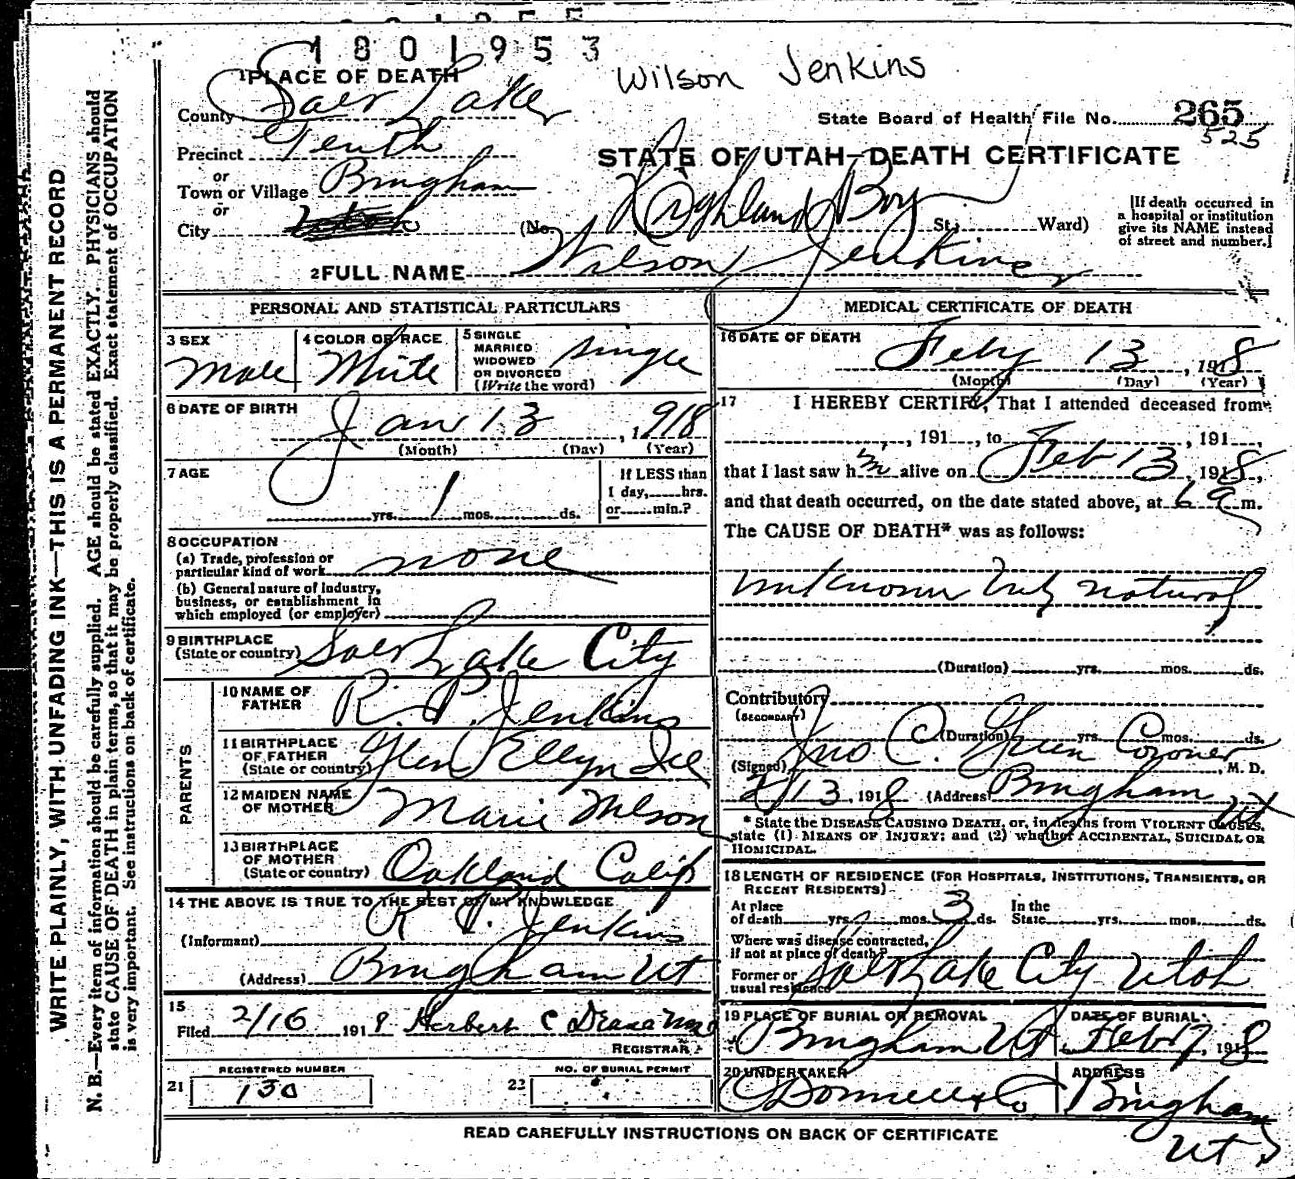 1801953
Wilson Jenkins
1 PLACE OF DEATH
County Salt Lake
State Board of Health File No. 265
525
Precinct Tenth
STATE OF UTAH—DEATH CERTIFICATE
or
Town or Village Bingham
or
City Utah
(No. Highland Boy St; Ward)
[If death occurred in
a hospital or institution
give its NAME instead
of street and number.]
2 FULL NAME Wilson Jenkins
PERSONAL AND STATISTICAL PARTICULARS
3 SEX Male
4 COLOR OR RACE White
5 SINGLE
MARRIED
WIDOWED
OR DIVORCED
(Write the word) Single
6 DATE OF BIRTH Jan 13, 1918
(Month) (Day) (Year)
7 AGE
yrs. 1 mos. ds.
If LESS than
1 day, hrs.
or min.?
8 OCCUPATION
(a) Trade, profession or
particular kind of work none
(b) General nature of industry,
business, or establishment in
which employed (or employer)
9 BIRTHPLACE
(State or country) Salt Lake City
PARENTS
10 NAME OF
FATHER R. P. Jenkins
11 BIRTHPLACE
OF FATHER
(State or country) Glen Ellyn Ill
12 MAIDEN NAME
OF MOTHER Marie Wilson
13 BIRTHPLACE
OF MOTHER
(State or country) Oakland Calif
14 THE ABOVE IS TRUE TO THE BEST OF MY KNOWLEDGE
(Informant) R. P. Jenkins
(Address) Bingham Ut
15
Filed 2/16 1918 Herbert C
REGISTRAR
21 REGISTERED NUMBER
130
22 NO. OF BURIAL PERMIT
MEDICAL CERTIFICATE OF DEATH
16 DATE OF DEATH
Feby 13, 1918
(Month) (Day) (Year)
17 I HEREBY CERTIFY, That I attended deceased from
, 191 , to Feb 13, 191 ,
that I last saw him alive on Feb 13, 1918,
and that death occurred, on the date stated above, at 6 a m.
The CAUSE OF DEATH* was as follows:
Unknown but natural
(Duration) yrs. mos. ds.
Contributory
(SECONDARY)
(Duration) yrs. mos. ds.
(Signed) Jno C. Green Coroner, M. D.
2/13, 1918 (Address) Bingham Ut
* State the DISEASE CAUSING DEATH, or, in deaths from VIOLENT CAUSES,
state (1) MEANS OF INJURY; and (2) whether ACCIDENTAL, SUICIDAL OR
HOMICIDAL.
18 LENGTH OF RESIDENCE (FOR HOSPITALS, INSTITUTIONS, TRANSIENTS, OR
RECENT RESIDENTS)
At place
of death yrs. mos. 3 ds.
In the
State yrs. mos. ds.
Where was disease contracted,
if not at place of death?
Former or
usual residence Salt Lake City Utah
19 PLACE OF BURIAL OR REMOVAL
Bingham Ut
DATE OF BURIAL
Feb 17, 1918
20 UNDERTAKER
ADDRESS
Bingham
Ut
READ CAREFULLY INSTRUCTIONS ON BACK OF CERTIFICATE
WRITE PLAINLY, WITH UNFADING INK—THIS IS A PERMANENT RECORD
N. B.—Every item of information should be carefully supplied. AGE should be stated EXACTLY. PHYSICIANS should
state CAUSE OF DEATH in plain terms, so that it may be properly classified. Exact statement of OCCUPATION
is very important. See instructions on back of certificate.